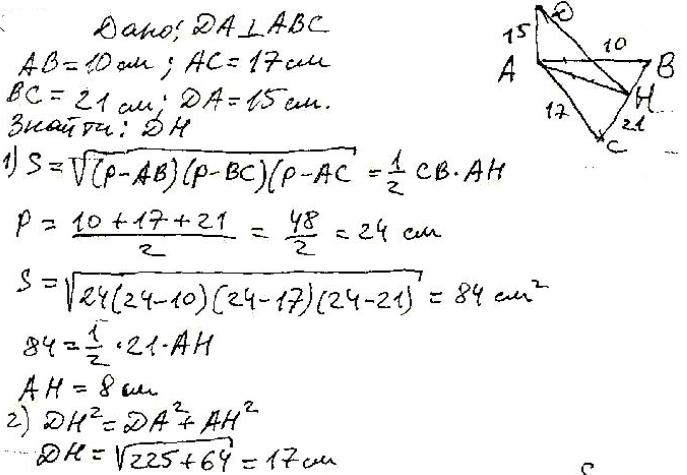 Дано; DA⊥ABC
AB=10см; AC=17см
BC=21см; DA=15см.
Знайти: DH
1) S=√(p-AB)(p-BC)(p-AC) = 1/2 CB·AH
P = (10+17+21)/2 = 48/2 = 24 см
S=√24(24-10)(24-17)(24-21) = 84 см²
84=1/2·21·AH
AH=8см
2) DH²=DA²+AH²
DH=√225+64=17см
D
15
10
A
B
H
17
21
C